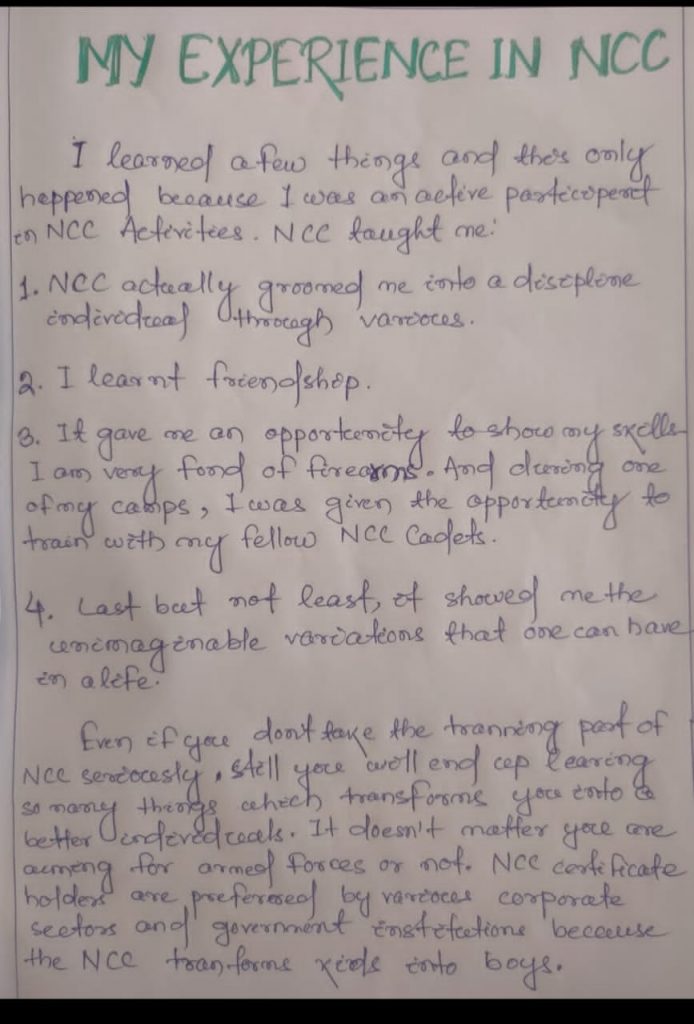 MY EXPERIENCE IN NCC
I learned a few things and this only
heppened because I was an active participent
in NCC Activities. NCC taught me:
1. NCC actually groomed me into a discipline
individual through various.
2. I learnt friendship.
3. It gave me an opportunity to show my skills
I am very fond of firearms. And during one
of my camps, I was given the opportunity to
train with my fellow NCC Cadets.
4. Last but not least, it showed me the
unimaginable variations that one can have
in a life.
Even if you don't take the tranning part of
NCC seriously, still you will end up learing
so many things which transforms you into a
better individuals. It doesn't matter you are
aiming for armed forces or not. NCC certificate
holders are preferered by various corporate
sectors and government institutions because
the NCC tranforms kids into boys.